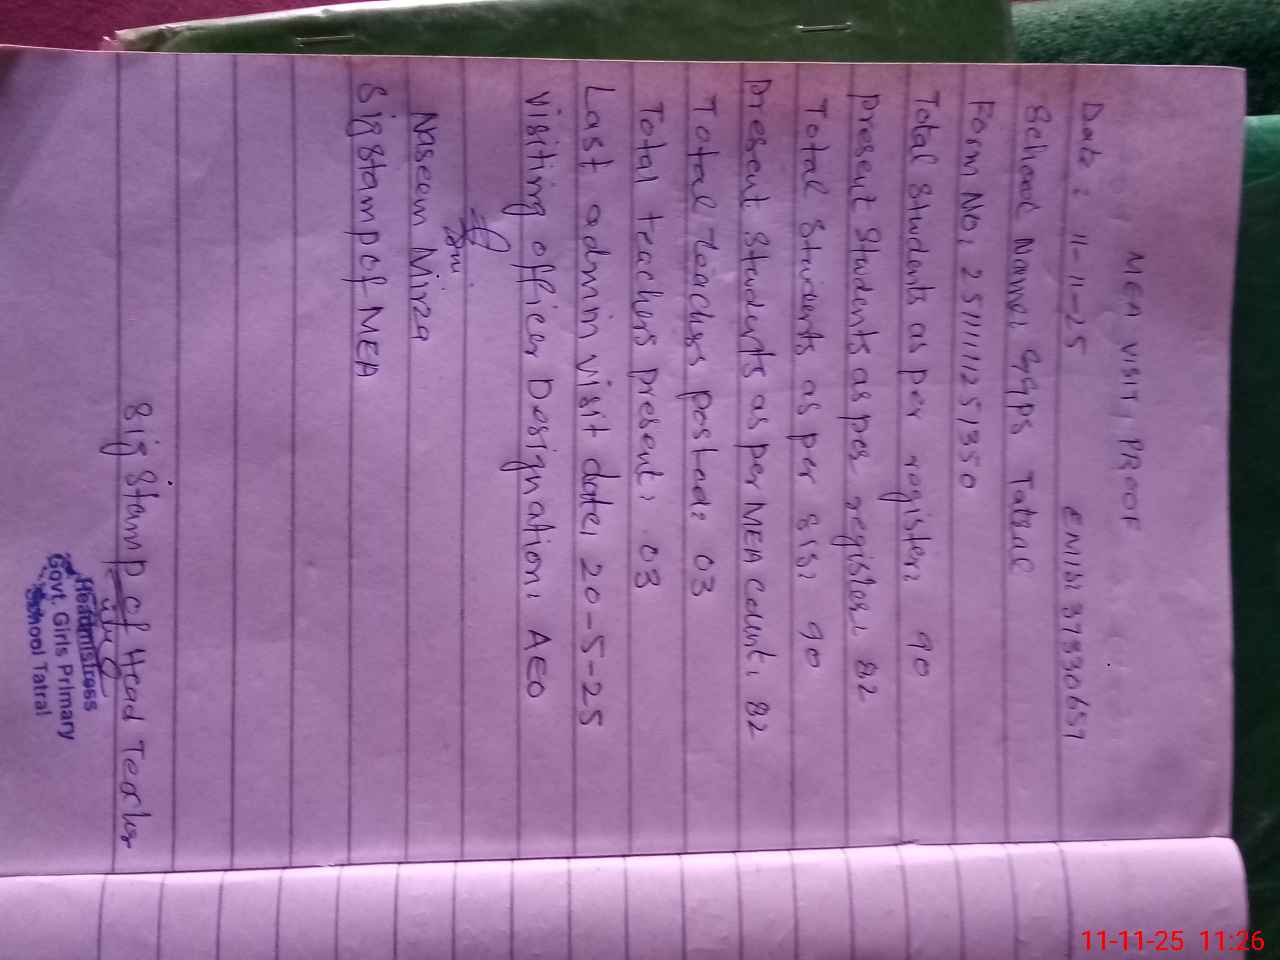 MEA VISIT, PROOF
Date: 11-11-25 EMIS: 37330657
School Name: GGPS Tatral
Form No: 2511111251350
Total Students as per register: 90
Present Students as per register: 82
Total Students as per SIS: 90
Present Students as per MEA Count: 82
Total Teachers posted: 03
Total teachers present: 03
Last admin visit date: 20-5-25
Visiting officer Designation: AEO
Naseem Mirza
Sig stamp of MEA
Sig stamp of Head Teacher
Headmistress
Govt. Girls Primary
School Tatral
11-11-25 11:26